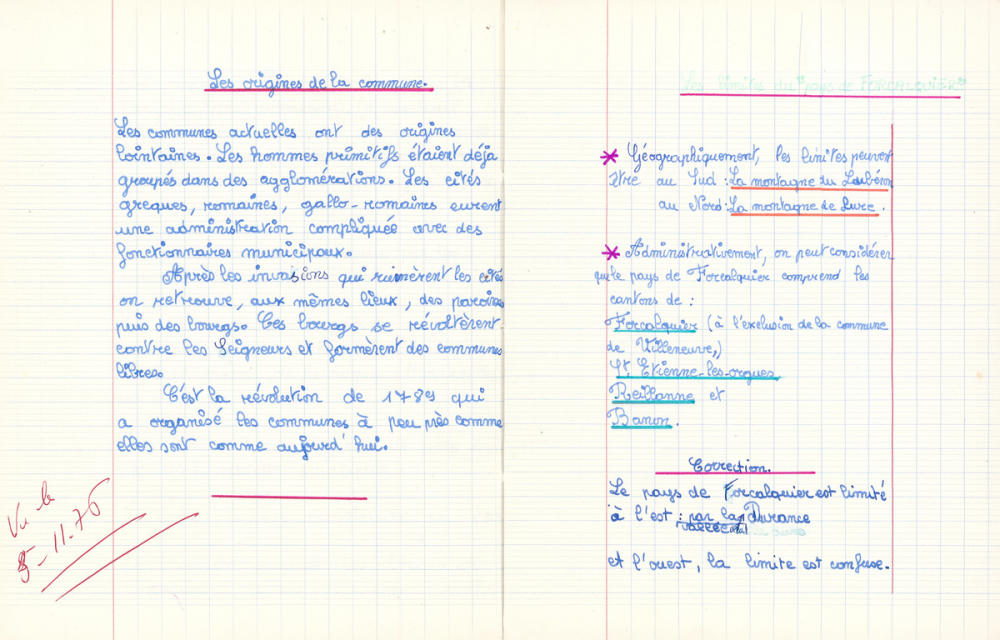 Les origines de la commune.
Les communes actuelles ont des origines
lointaines. Les hommes primitifs étaient déja
groupés dans des agglomérations. Les cités
grecques, romaines, gallo-romaines eurent
une administration compliquée avec des
fonctionnaires municipaux.
Après les invasions qui ruinèrent les cités
on retrouve, aux mêmes lieux, des paroisses
puis des bourgs. Ces bourgs se révoltèrent
contre les Seigneurs et formèrent des communes
libres.
C'est la révolution de 1789 qui
a organisé les communes à peu près comme
elles sont comme aujourd'hui.
Vu le
5-11-76
Les limites du Pays de FORCALQUIER
* Géographiquement, les limites peuvent
être au Sud : La montagne du Lubéron
au Nord : La montagne de Lure.
* Administrativement, on peut considérer
que le pays de Forcalquier comprend les
cantons de :
Forcalquier (à l'exclusion de la commune
de Villeneuve,)
St. Etienne-les-orgues
Reillanne et
Banon.
Correction.
Le pays de Forcalquier est limité
à l'est : par la Durance
et l'ouest, la limite est confuse.